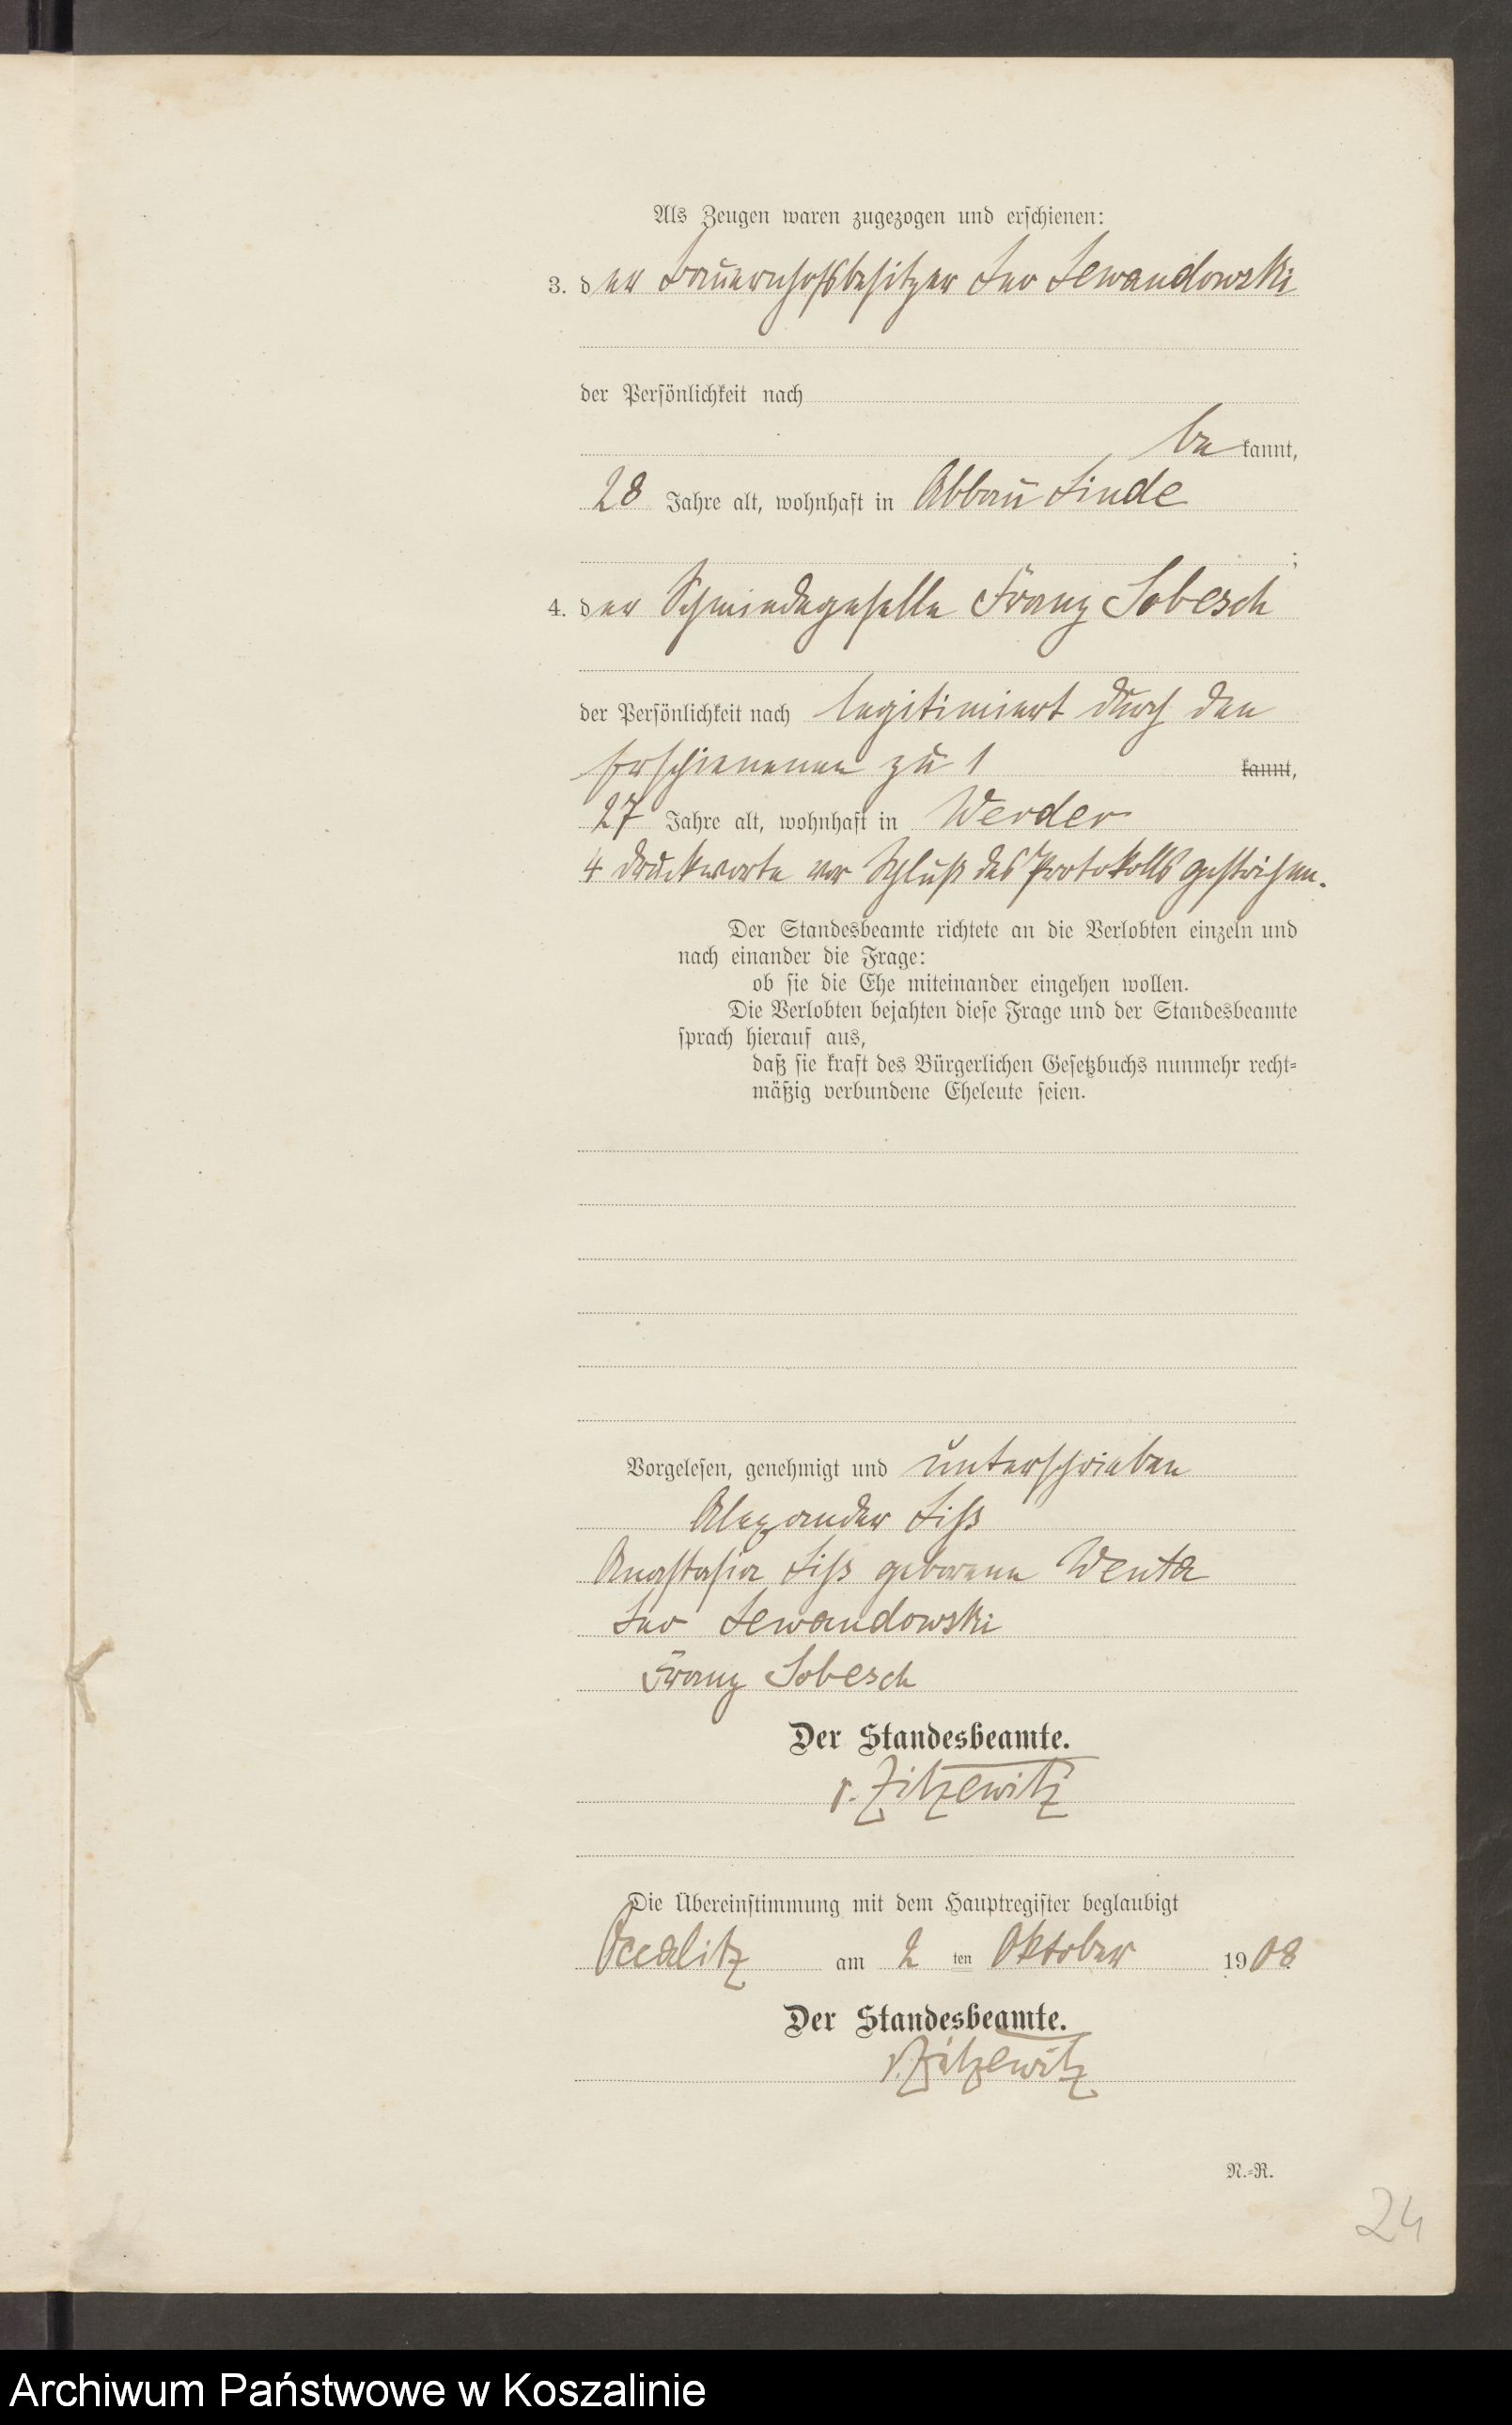 Als Zeugen waren zugezogen und erschienen:
3. der Bauernhofsbesitzer Leo Lewandowski
der Persönlichkeit nach
bekannt,
28 Jahre alt, wohnhaft in Abbau Linde
;
4. der Schmiedegeselle Franz Sobesch
der Persönlichkeit nach legitimiert durch den
Erschienenen zu 1 kannt,
27 Jahre alt, wohnhaft in Werder
4 Druckworte vor Schluß des Protokolls gestrichen.
Der Standesbeamte richtete an die Verlobten einzeln und
nach einander die Frage:
ob sie die Ehe miteinander eingehen wollen.
Die Verlobten bejahten diese Frage und der Standesbeamte
sprach hierauf aus,
daß sie kraft des Bürgerlichen Gesetzbuchs nunmehr recht-
mäßig verbundene Eheleute seien.
Vorgelesen, genehmigt und unterschrieben
Alexander Liß
Anastasia Liß geborene Wenta
Leo Lewandowski
Franz Sobesch
Der Standesbeamte.
v. Zitzewitz
Die Übereinstimmung mit dem Hauptregister beglaubigt
Occalitz am 2 ten Oktober 1908
Der Standesbeamte.
v. Zitzewitz
N.-R.
24
Archiwum Państwowe w Koszalinie